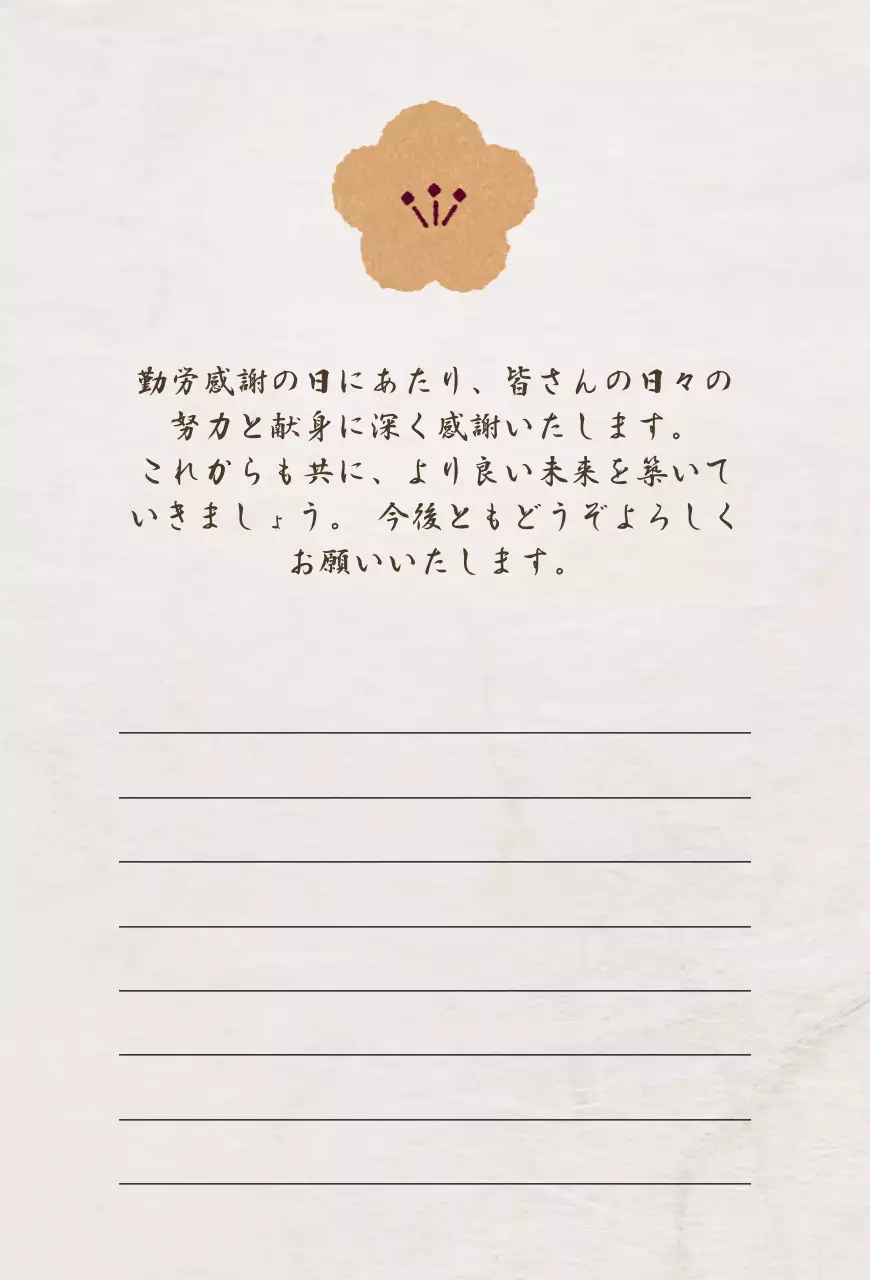 勤労感謝の日にあたり、皆さんの日々の
努力と献身に深く感謝いたします。
これからも共に、より良い未来を築いて
いきましょう。 今後ともどうぞよろしく
お願いいたします。